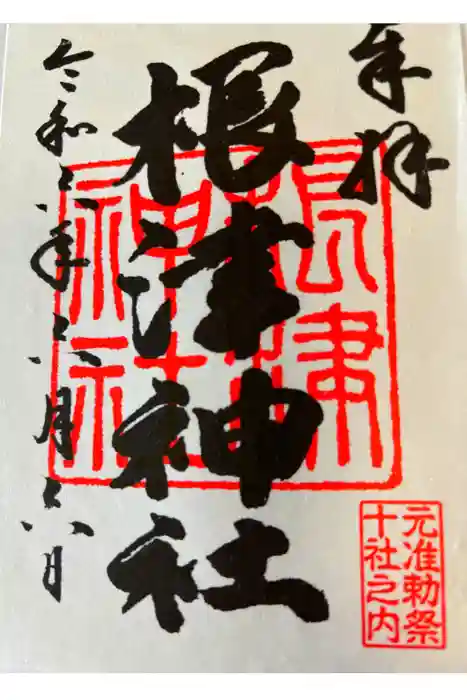 奉拝
根津神社
令和六年六月六日
根津
神社
元准勅祭
十社之内